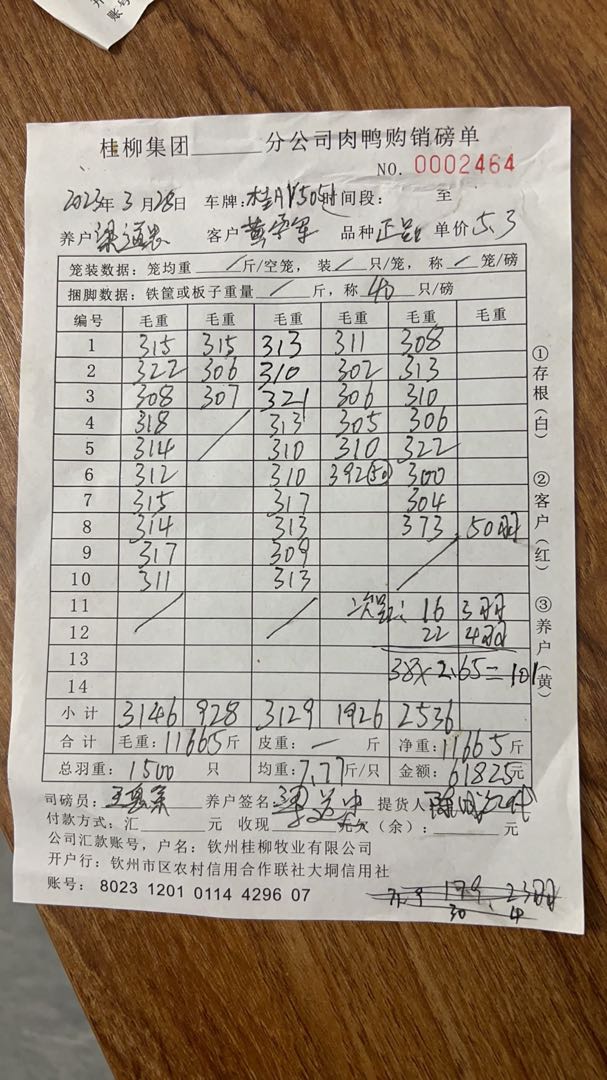 账号
桂柳集团______分公司肉鸭购销磅单
NO. 0002464
2023年3月28日 车牌: 时间段: 至
养户 客户 品种 正品 单价 5.3
笼装数据: 笼均重 / 斤/空笼, 装 / 只/笼, 称 / 笼/磅
捆脚数据: 铁筐或板子重量 / 斤, 称 40 只/磅
编号 毛重 毛重 毛重 毛重 毛重 毛重
1 315 315 313 311 308
2 322 306 310 302 313
3 308 307 321 306 310
4 318 / 313 305 306
5 314 310 310 322
6 312 310 392(50) 300
7 315 317 304
8 314 313 373 50羽
9 317 309 /
10 311 313
11 / / 次品: 16 3羽
12 22 4羽
13 38×2.65=101
14
小计 3146 928 3129 1926 2536
合计 毛重: 11665斤 皮重: — 斤 净重: 11665斤
总羽重: 1500 只 均重: 7.77斤/只 金额: 61825元
司磅员: 养户签名: 提货人
付款方式: 汇______元 收现______元欠(余): ______元
公司汇款账号, 户名: 钦州桂柳牧业有限公司
开户行: 钦州市区农村信用合作联社大垌信用社
账号: 8023 1201 0114 4296 07
179. 23羽
30 4
①存根(白)
②客户(红)
③养户(黄)